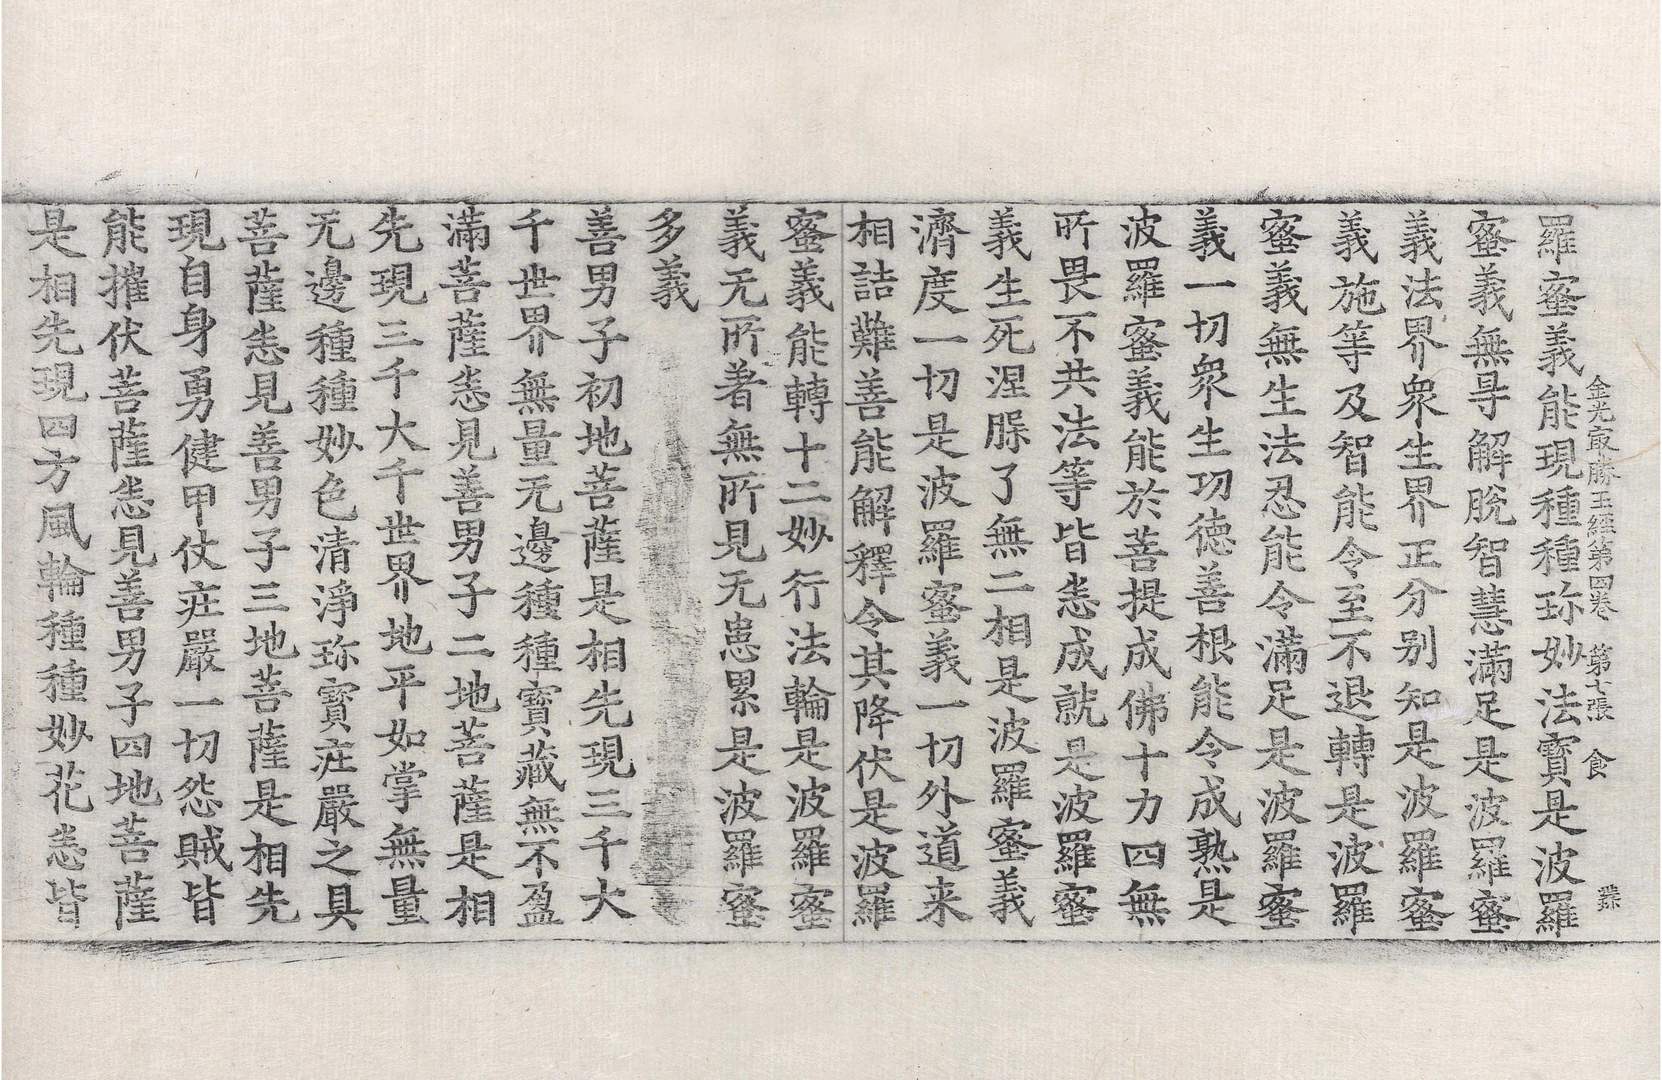 金光㝡勝王經第四卷　第七張　食
羅蜜義能現種種珎妙法寶是波羅
蜜義無㝵解脫智慧滿足是波羅蜜
義法界衆生界正分别知是波羅蜜
義施等及智能令至不退轉是波羅
蜜義無生法忍能令滿足是波羅蜜
義一切衆生功德善根能令成熟是
波羅蜜義能於菩提成佛十力四無
所畏不共法等皆悉成就是波羅蜜
義生死涅槃了無二相是波羅蜜義
濟度一切是波羅蜜義一切外道来
相詰難善能解釋令其降伏是波羅
蜜義能轉十二妙行法輪是波羅蜜
義无所著無所見无患累是波羅蜜
多義
善男子初地菩薩是相先現三千大
千世界無量无邊種種寶藏無不盈
滿菩薩悉見善男子二地菩薩是相
先現三千大千世界地平如掌無量
无邊種種妙色清淨珎寶莊嚴之具
菩薩悉見善男子三地菩薩是相先
現自身勇健甲仗莊嚴一切怨賊皆
能摧伏菩薩悉見善男子四地菩薩
是相先現四方風輪種種妙花悉皆